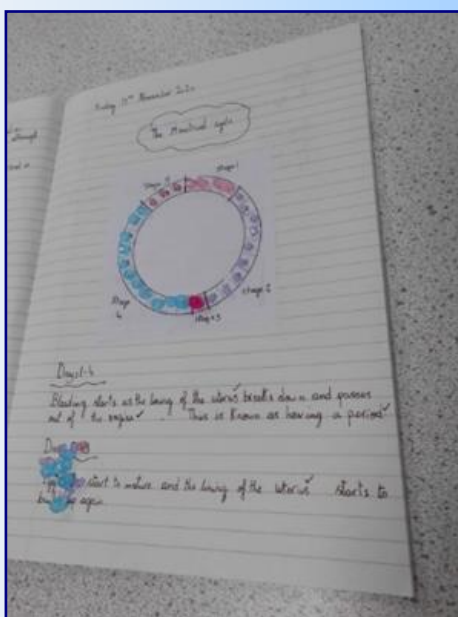 Friday 13th November 2020
The Menstrual cycle
Stage 5
Stage 1
Stage 2
Stage 3
Stage
4
Days 1-4
Bleeding starts as the lining of the uterus breaks down and passes
out of the vagina. This is known as having a period
Day
start to mature and the lining of the uterus starts to
again